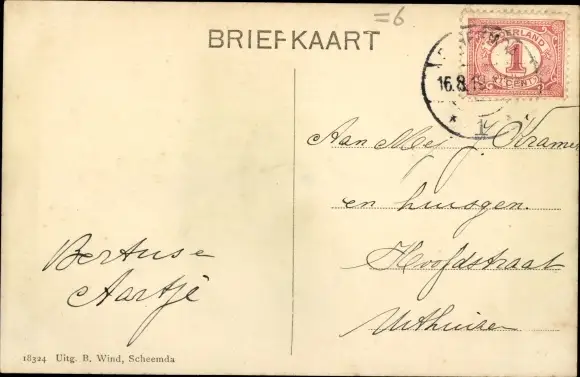 =6
BRIEFKAART
NEDERLAND
1
CENT
16.8.19
1
Aan Mej Kramer
en huisgen.
Hoofdstraat
Uithuizen
Bertus e
Aartje
18324 Uitg. B. Wind, Scheemda